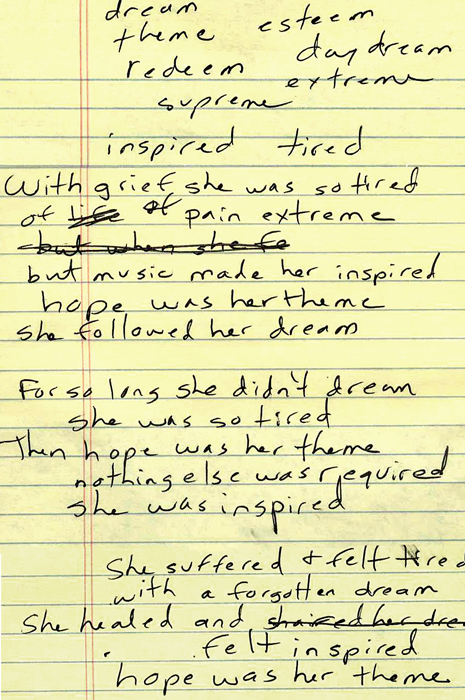 dream
theme esteem
day dream
redeem
extreme
supreme
inspired tired
With grief she was so tired
of life of pain extreme
but when she fe
but music made her inspired
hope was her theme
she followed her dream
For so long she didn't dream
she was so tired
Then hope was her theme
nothing else was required
she was inspired
She suffered + felt tired
with a forgotten dream
She healed and shared her drea
felt inspired
hope was her theme